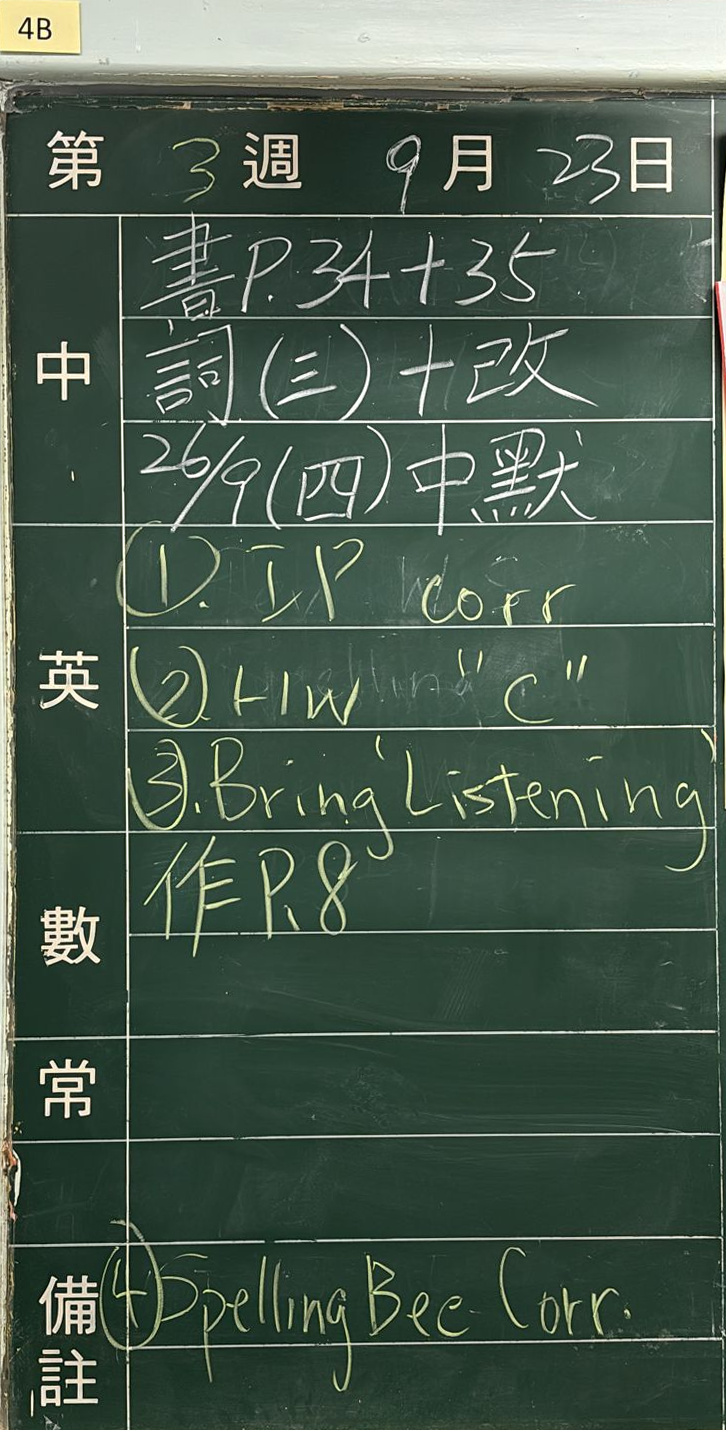 4B
第 3 週 9 月 23 日
中
書 P.34+35
詞(三)+改
26/9(四)中默
英
①. IP corr
②. HW "C"
③. Bring 'Listening'
數
作 P.8
常
備註
④ Spelling Bee Corr.